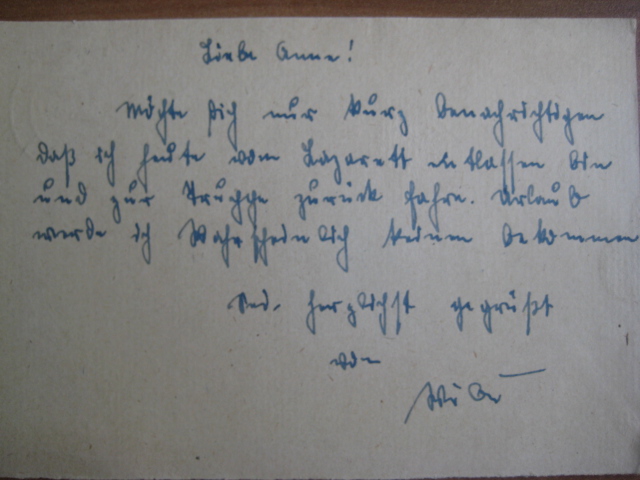 Liebe Anne!
Möchte dich nur kurz benachrichtigen
daß ich heute vom Lazarett entlassen bin
und zur Truppe zurück fahre. Urlaub
werde ich Wahrscheinlich keinen bekommen
Sei. herzlichst gegrüßt
von